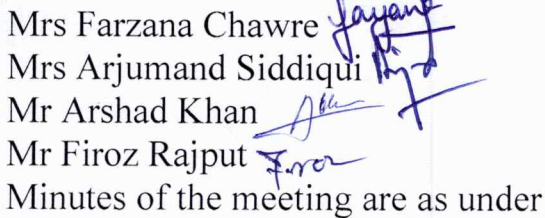 Mrs Farzana Chawre
Mrs Arjumand Siddiqui
Mr Arshad Khan
Mr Firoz Rajput Firoz
Minutes of the meeting are as under